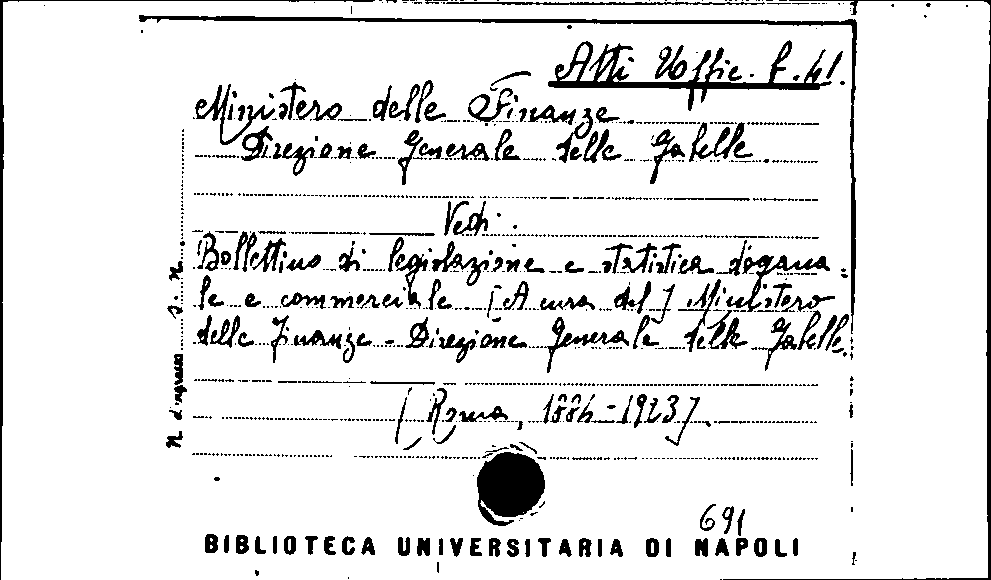 Atti Uffic. f. 41.
Ministero delle Finanze.
Direzione Generale delle Gabelle.
Vedi:
Bollettino di legislazione e statistica dogana=
le e commerciale [A cura del] Ministero
delle Finanze - Direzione Generale delle Gabelle.
[Roma, 1884-1923].
N. d'ingresso
691
BIBLIOTECA UNIVERSITARIA DI NAPOLI